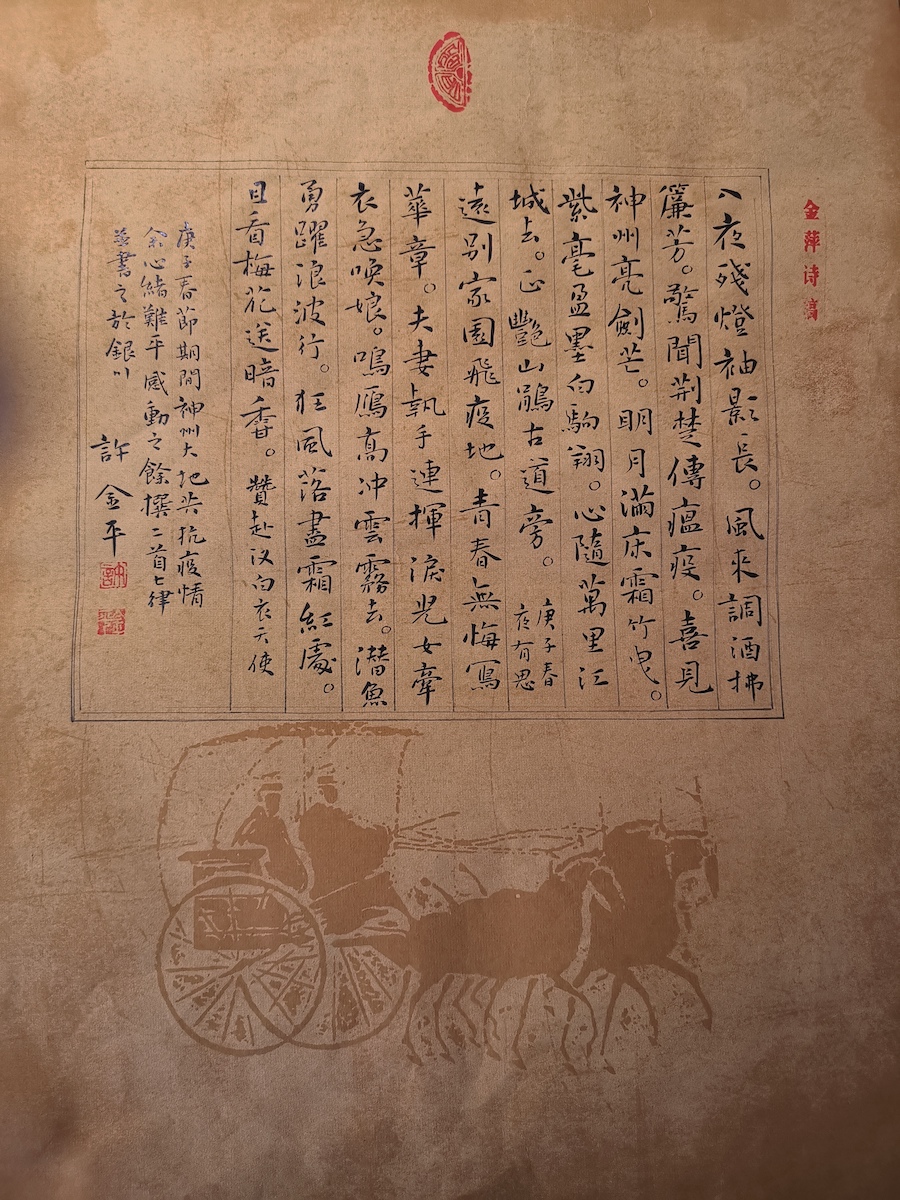 金萍诗稿
入夜殘燈袖影長。風來調酒拂
簾芳。驚聞荆楚傳瘟疫。喜見
神州亮劍芒。明月滿床霜竹曳。
紫毫盈墨白駒翔。心隨萬里江
城去。正豔山鵑古道旁。
庚子春
夜有思
遠別家園飛疫地。青春無悔寫
華章。夫妻執手連揮淚。兒女牽
衣急喚娘。鳴雁高冲雲霧去。潛魚
勇躍浪波行。狂風落盡霜紅處。
且看梅花送暗香。贊赴汉白衣天使
庚子春節期間神州大地共抗疫情
余心緒難平感動之餘撰二首七律
並書之於銀川
許金平